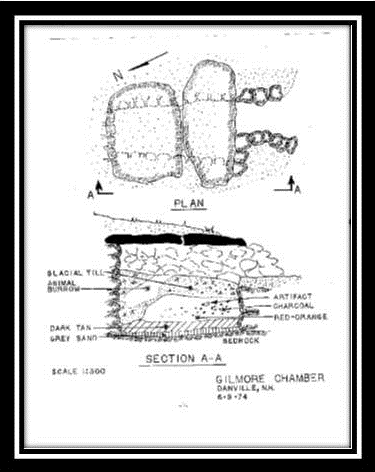 N
A
A
PLAN
GLACIAL TILL
ANIMAL
BURROW
ARTIFACT
CHARCOAL
RED-ORANGE
DARK TAN
GREY SAND
BEDROCK
SECTION A-A
SCALE 1:300
GILMORE CHAMBER
DANVILLE, N.H.
6-9-74